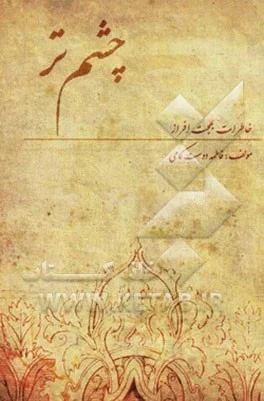 چشم تر
خاطرات بهجت افراز
مولف: فاطمه دوست کامی
WWW.KETAB.IR